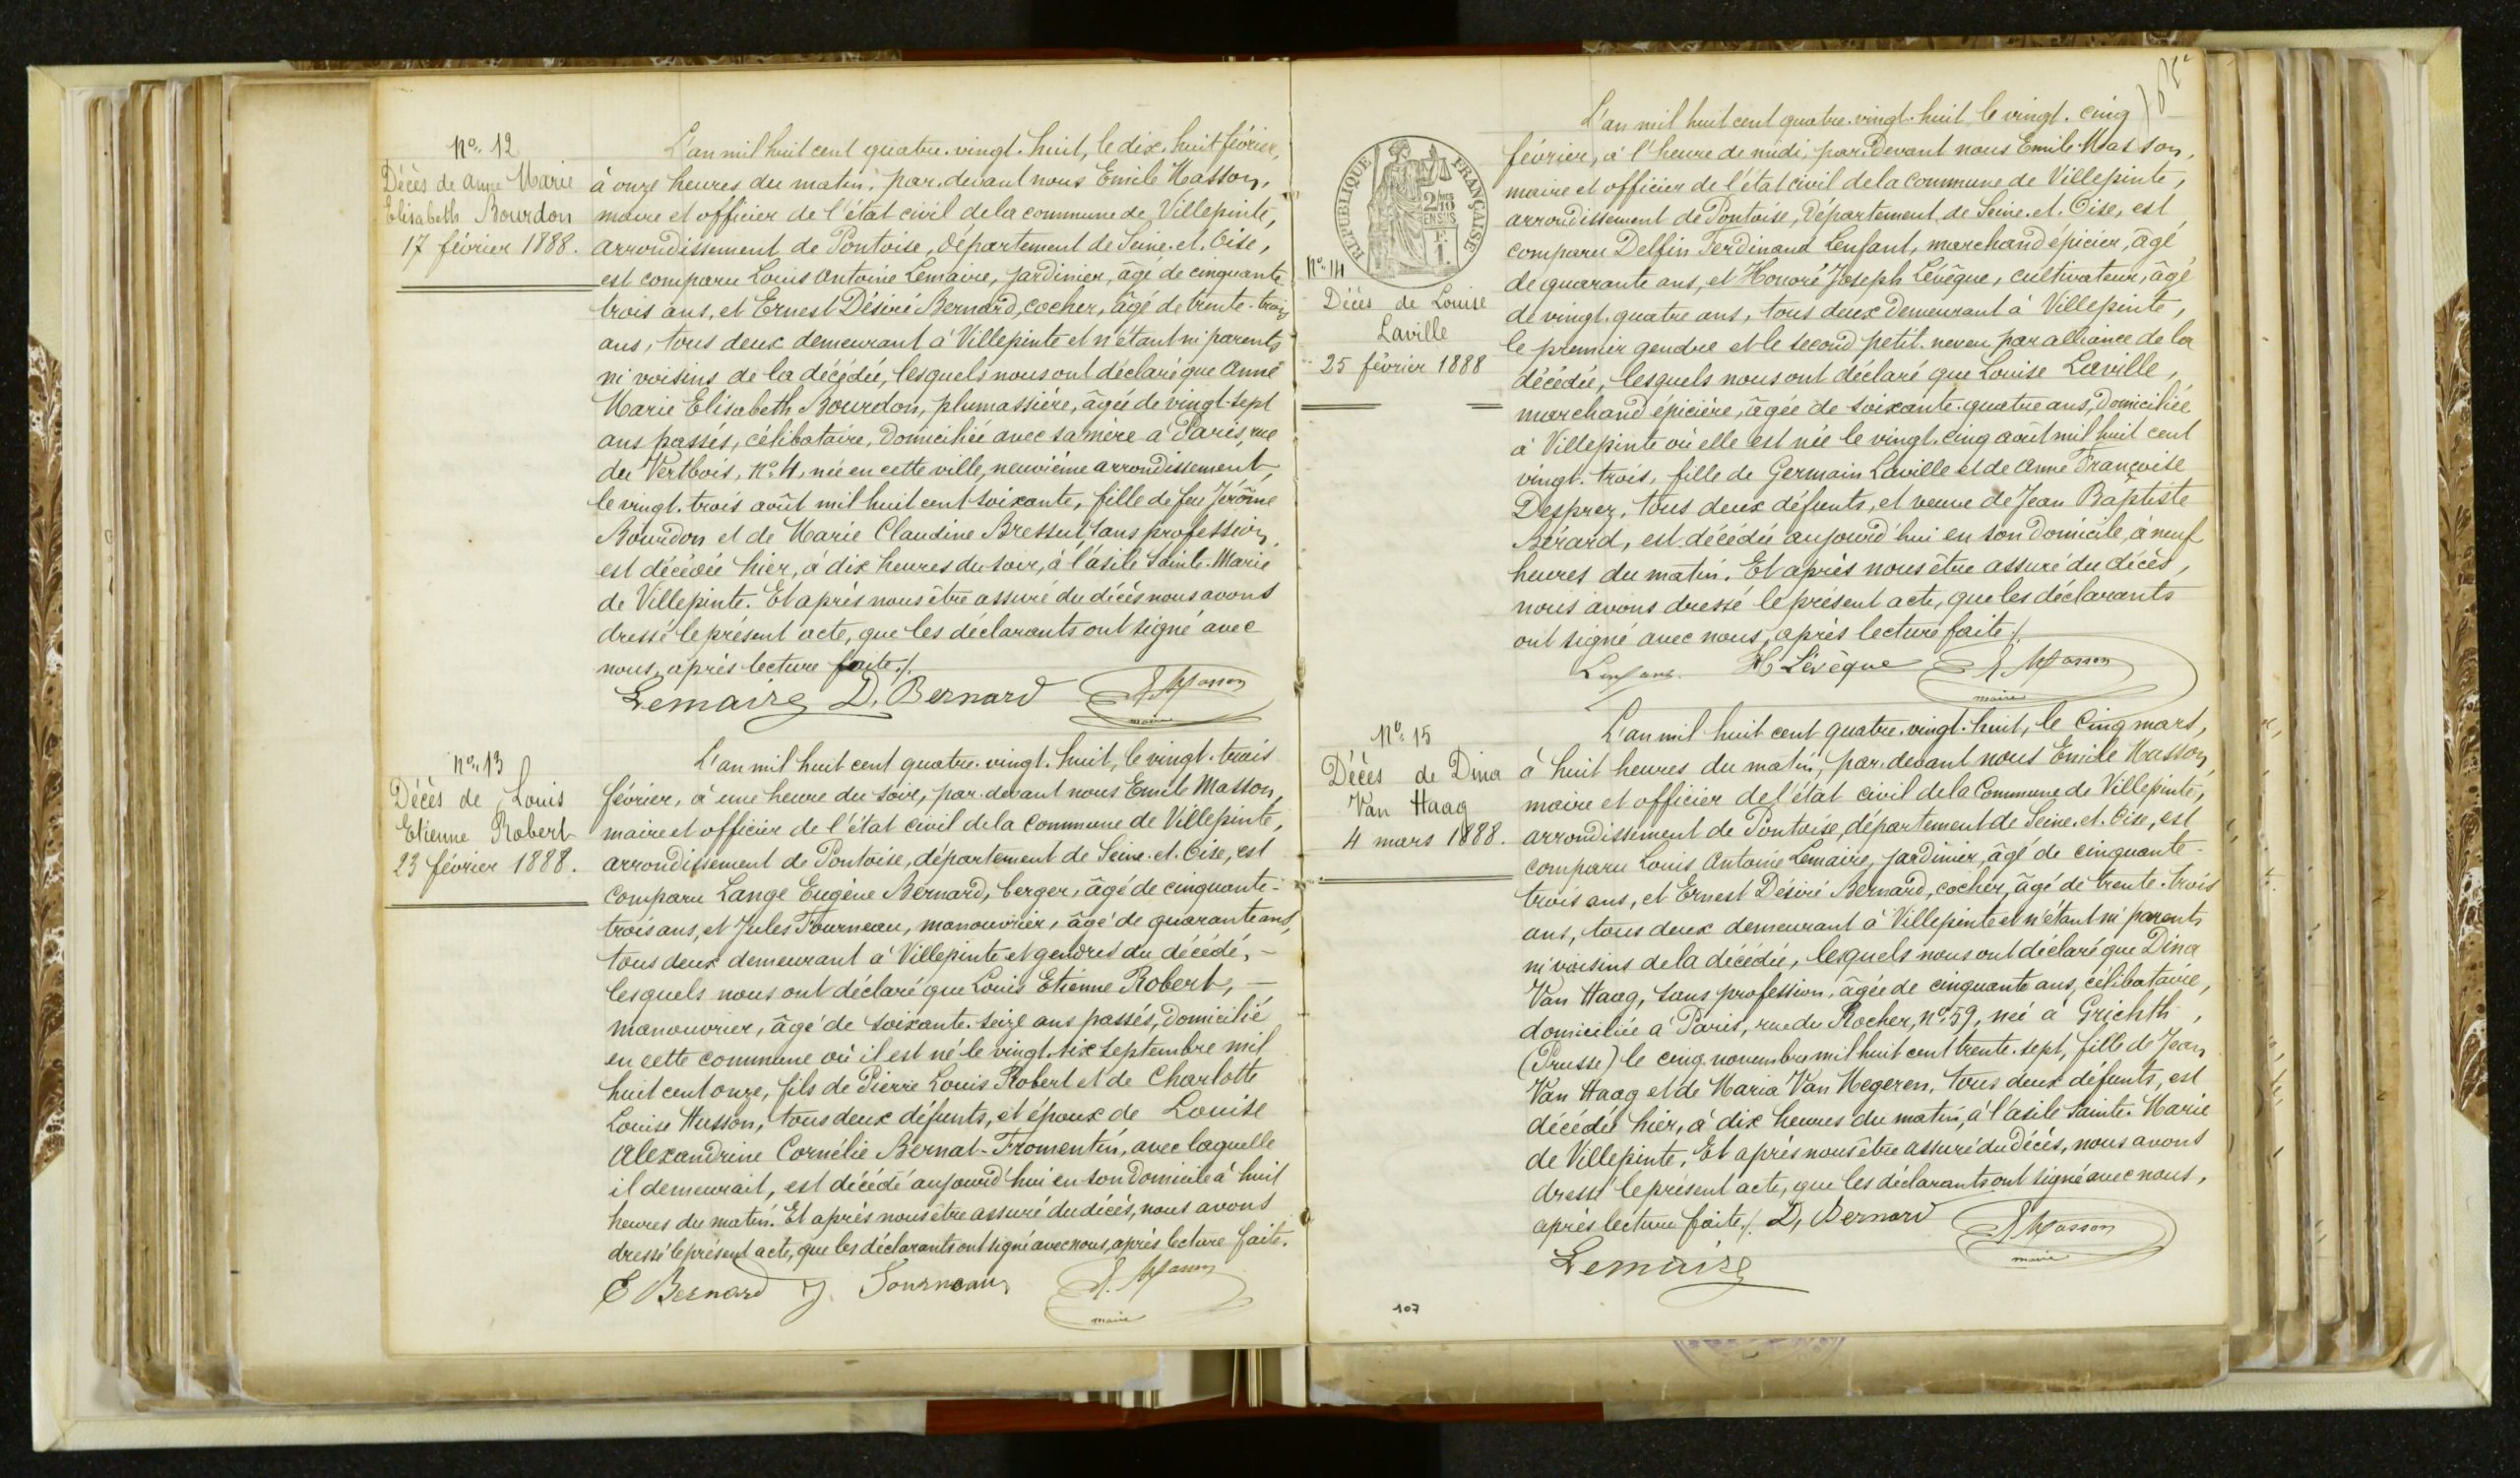 N° 12
Décès de Anne Marie
Elisabeth Bourdon
17 février 1888.
L'an mil huit cent quatre-vingt-huit, le dix-huit février,
à onze heures du matin, par-devant nous Emile Masson,
maire et officier de l'état civil de la commune de Villepinte,
arrondissement de Pontoise, département de Seine-et-Oise,
est comparu Louis Antoine Lemaire, jardinier, âgé de cinquante
trois ans, et Ernest Désiré Bernard, cocher, âgé de trente-trois
ans, tous deux demeurant à Villepinte et n'étant ni parents
ni voisins de la décédée, lesquels nous ont déclaré que Anne
Marie Elisabeth Bourdon, plumassière, âgée de vingt-sept
ans passés, célibataire, domiciliée avec sa mère à Paris, rue
du Vertbois, n° 4, née en cette ville, neuvième arrondissement,
le vingt-trois août mil huit cent soixante, fille de feu Jérôme
Bourdon et de Marie Claudine Bressut, sans profession,
est décédée hier, à dix heures du soir, à l'asile Sainte-Marie
de Villepinte. Et après nous être assuré du décès nous avons
dressé le présent acte, que les déclarants ont signé avec
nous, après lecture faite./.
Lemaire D. Bernard E. Masson
maire
N° 13
Décès de Louis
Etienne Robert
23 février 1888.
L'an mil huit cent quatre-vingt-huit, le vingt-trois
février, à une heure du soir, par-devant nous Emile Masson,
maire et officier de l'état civil de la commune de Villepinte,
arrondissement de Pontoise, département de Seine-et-Oise, est
comparu Lange Eugène Bernard, berger, âgé de cinquante-
trois ans, et Jules Fourneau, manouvrier, âgé de quarante ans,
tous deux demeurant à Villepinte et gendres du décédé, -
lesquels nous ont déclaré que Louis Etienne Robert, -
manouvrier, âgé de soixante-seize ans passés, domicilié
en cette commune où il est né le vingt-six septembre mil
huit cent onze, fils de Pierre Louis Robert et de Charlotte
Louise Husson, tous deux défunts, et époux de Louise
Alexandrine Cornélie Bernat-Fromentin, avec laquelle
il demeurait, est décédé aujourd'hui en son domicile à huit
heures du matin. Et après nous être assuré du décès, nous avons
dressé le présent acte, que les déclarants ont signé avec nous, après lecture faite.
E Bernard J. Fourneau E. Masson
maire
RÉPUBLIQUE FRANÇAISE
2/10
EN SUS
F.
1.
N° 14
Décès de Louise
Laville
25 février 1888
L'an mil huit cent quatre-vingt-huit, le vingt-cinq
février, à l'heure de midi, par-devant nous Emile Masson,
maire et officier de l'état civil de la commune de Villepinte,
arrondissement de Pontoise, département de Seine-et-Oise, est
comparu Delfin Ferdinand Lenfant, marchand épicier, âgé
de quarante ans, et Honoré Joseph Lévêque, cultivateur, âgé
de vingt-quatre ans, tous deux demeurant à Villepinte,
le premier gendre et le second petit-neveu par alliance de la
décédée, lesquels nous ont déclaré que Louise Laville,
marchand épicière, âgée de soixante-quatre ans, domiciliée
à Villepinte où elle est née le vingt-cinq août mil huit cent
vingt-trois, fille de Germain Laville et de Anne Françoise
Desprez, tous deux défunts, et veuve de Jean Baptiste
Bérard, est décédée aujourd'hui en son domicile, à neuf
heures du matin. Et après nous être assuré du décès,
nous avons dressé le présent acte, que les déclarants
ont signé avec nous, après lecture faite./.
Lenfant H. Lévêque E. Masson
maire
N° 15
Décès de Dina
Van Haag
4 mars 1888.
L'an mil huit cent quatre-vingt-huit, le cinq mars,
à huit heures du matin, par-devant nous Emile Masson,
maire et officier de l'état civil de la Commune de Villepinte,
arrondissement de Pontoise, département de Seine-et-Oise, est
comparu Louis Antoine Lemaire, jardinier, âgé de cinquante-
trois ans, et Ernest Désiré Bernard, cocher, âgé de trente-trois
ans, tous deux demeurant à Villepinte et n'étant ni parents
ni voisins de la décédée, lesquels nous ont déclaré que Dina
Van Haag, sans profession, âgée de cinquante ans, célibataire,
domiciliée à Paris, rue du Rocher, n° 59, née à Grichth,
(Prusse) le cinq novembre mil huit cent trente-sept, fille de Jean
Van Haag et de Maria Van Megeren, tous deux défunts, est
décédée hier, à dix heures du matin, à l'asile Sainte-Marie
de Villepinte. Et après nous être assuré du décès, nous avons
dressé le présent acte, que les déclarants ont signé avec nous,
après lecture faite./. D. Bernard E. Masson
maire
Lemaire
107